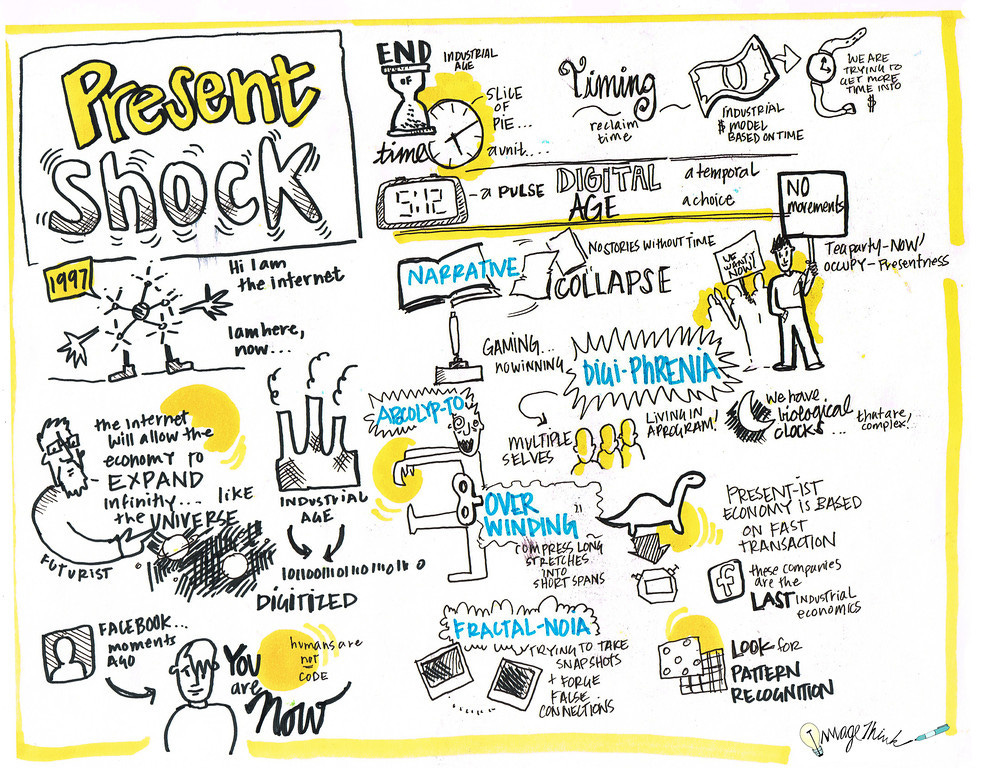 Present
Shock
END
OF
INDUSTRIAL
AGE
time
SLICE
OF
PIE...
a unit....
Timing
reclaim
time
INDUSTRIAL
$ MODEL
BASED ON TIME
WE ARE
TRYING TO
GET MORE
TIME INTO
$
5:12
-a PULSE
DIGITAL
AGE
a temporal
a choice
NO
movements
Teaparty-NOW!
OCCUPY-Presentness
WE
WANT IT
NOW!
1997
Hi I am
the internet
I am here,
now...
NARRATIVE
COLLAPSE
NO STORIES WITHOUT TIME
GAMING...
no winning
DIGI-PHRENIA
MULTIPLE
SELVES
LIVING IN
A PROGRAM!
We have
biological
clocks...
that are,
complex!
the internet
will allow the
economy to
EXPAND
infinitly... like
the UNIVERSE
FUTURIST
INDUSTRIAL
AGE
DIGITIZED
ABCOLYP-TO
OVER
WINDING
COMPRESS LONG
STRETCHES
INTO
SHORT SPANS
PRESENT-IST
ECONOMY IS BASED
ON FAST
TRANSACTION
f
these companies
are the
LAST industrial
economics
FACEBOOK...
moments
AGO
You
are
Now
humans are
not
CODE
FRACTAL-NOIA
TRYING TO TAKE
SNAPSHOTS
+ FORGE
FALSE
CONNECTIONS
LOOK for
PATTERN
RECOGNITION
ImageThink